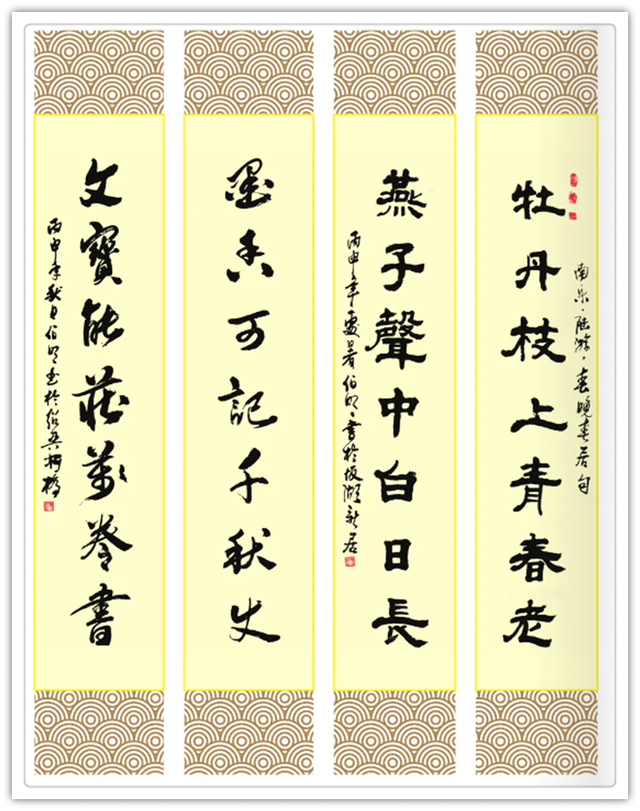 南宋·陆游·春晚居句
牡丹枝上青春老
燕子聲中白日長
丙申年處暑伯明·書於湖新居
墨香可記千秋史
文寶能藏萬卷書
丙申年秋月伯明書於紹興柯橋